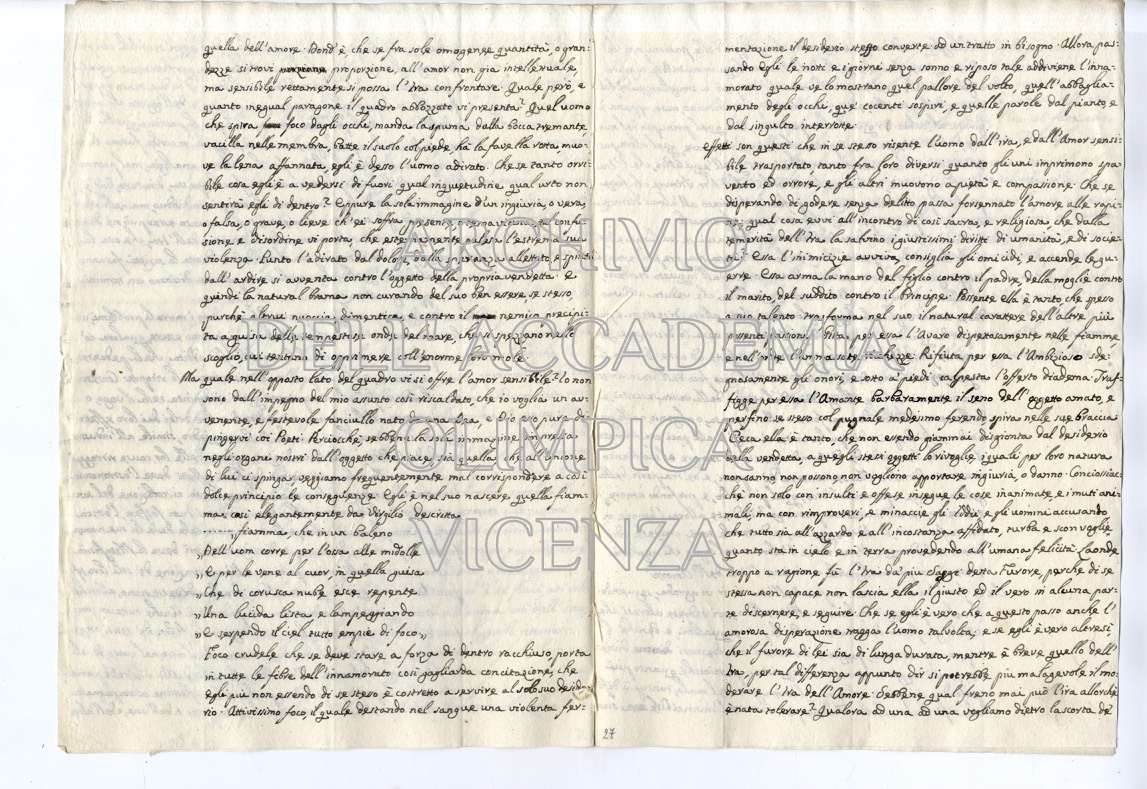 quella dell'amore. Dond'è che se fra sole omogenee quantità, o gran:
dezze si trovi proporzione, all'amor non già intellettuale,
ma sensibile rettamente si possa l'Ira confrontare. Quale però, e
quanto inegual paragone il quadro abbozzato vi presenta? Quel uomo
che spira foco dagli occhi, manda la spuma dalla bocca tremante
vacilla nelle membra, batte il suolo col piede, hà la favella rotta, muo:
ve la lena affannata, egli è desso l'uomo adirato. Che se tanto orri:
bile cosa egli è a vedersi di fuori qual inquietudine qual urto non
sentirà egli di dentro? Eppure la sola immagine d'un ingiuria, o vera,
o falsa, o grave, o lieve ch'ei soffra tal confu:
sione e disordine vi porta, che palesa l'estrema sua
violenza. Punto l'adirato dal dolore, dalla speranza allettato, e spinto
dall'ardire si avventa contro l'oggetto della propria vendetta. e
quindi la natural brama non curando del suo ben essere, se stesso,
purchè altrui nuoccia, dimentica, e contro il nemico precipi:
ta a guisa delle tempestose onde del mare, che si spezzano nello
scoglio, cui tentino di opprimere coll'enorme loro mole.
Ma quale nell'opposto lato del quadro vi si offre l'amor sensibile? Io non
sono dall'impegno del mio assunto così riscaldato, che io voglia un av:
venente, e festevole fanciullo nato da una Dea, e Dio esso pure di:
pingervi coi Poeti. Perciocchè, sebbene la sola immagine impressa
negli organi nostri dall'oggetto che piace, sia quella che all'unione
di lui ci spinga, veggiamo frequentemente mal corrispondere a così
dolce principio le conseguenze. Egli è nel suo nascere quella fiam:
ma così elegantemente da Virgilio descritta
........ fiamma, che in un baleno
„ Dell'uom corre per l'ossa alle midolle
„ E per le vene al cuor, in quella guisa
„ Che di corusca nube esce repente
„ Una lucida lista, e lampeggiando
„ E serpendo il ciel tutto empie di foco „
Foco crudele che se deve stare a forza di dentro racchiuso, porta
in tutte le fibre dell'innamorato così gagliarda concitazione, che
egli più non essendo di se stesso è costretto a servire al solo suo deside:
rio. Attivissimo foco, il quale destando nel sangue una violenta fer:
27
mentazione il desiderio stesso converte ad un tratto in bisogno. Allora pas:
sando egli le notti e i giorni senza sonno e riposo tale addiviene l'inna:
morato quale ve lo mostrano quel pallore del volto, quell'abbaglia:
mento degli occhi, que' cocenti sospiri, e quelle parole dal pianto, e
dal singulto interrotte.
effetti son questi che in se stesso risente l'uomo dall'ira, e dall'Amor sensi:
bile trasportato, tanto fra loro diversi quanto gli uni imprimono spa:
vento ed orrore, e gli altri muovono a pietà e compassione. Che se
disperando di godere senza delitto passa forsennato l'amore alle rapi:
ne; qual cosa evvi all'incontro di così sacra, e religiosa che dalla
temerità dell'Ira la salvino i giustissimi diritti di umanità, e di socie:
tà? Essa l'inimicizie avviva, consiglia gli omicidi, e accende le gu:
erre. Essa arma la mano del figlio contro il padre, della moglie contro
il marito, del suddito contro il Principe. Possente ella è tanto, che spesso
a suo talento trasforma nel suo il natural carattere dell'altre più
possenti passioni. Gitta per essa l'Avaro dispettosamente nelle fiamme,
e nell'onde l'unica sua ricchezza. Rifiuta per essa l'Ambizioso sde:
gnosamente gli onori, e sotto a' piedi calpesta l'offerto diadema. Traf:
figge per essa l'Amante barbaramente il seno dell'oggetto amato, e
perfino se stesso col pugnale medesimo ferendo spira nelle sue braccia
Cieca ella è tanto, che non essendo giammai disgionta dal desiderio
della vendetta, a quegli stessi oggetti lo rivoglie, i quali per loro natura
non sanno, non possono, non vogliono apportare ingiuria, o danno. Conciossiac:
chè non solo con insulti e offese insegue le cose inanimate, e i muti ani:
mali, ma con rimproveri, e minaccie gli Iddii, e gli uomini accusando,
che tutto sia all'azzardo e all'incostanza affidato, turba e sconvoglie
quanto sta in cielo e in terra provedendo all'umana felicità. Laonde
troppo a ragione fù l'Ira da' più Saggi detta Furore, perchè di se
stessa non capace non lascia ella il giusto ed il vero in alcuna par:
te discernere, e seguire. Che se egli è vero che a questo passo anche l'
amorosa disperazione tragga l'uomo talvolta; e se egli è vero altresì,
che il furore di lei sia di lunga durata, mentre è breve quello dell'
Ira, per tal differenza appunto dir si potrebbe più malagevole il mo:
derare l'Ira dell'Amore. Sebbene qual freno mai può l'ira allorchè
è nata tolerare? Qualora ad una ad una vogliamo dietro la scorta de'
ARCHIVIO
DELL'ACCADEMIA
OLIMPICA
VICENZA